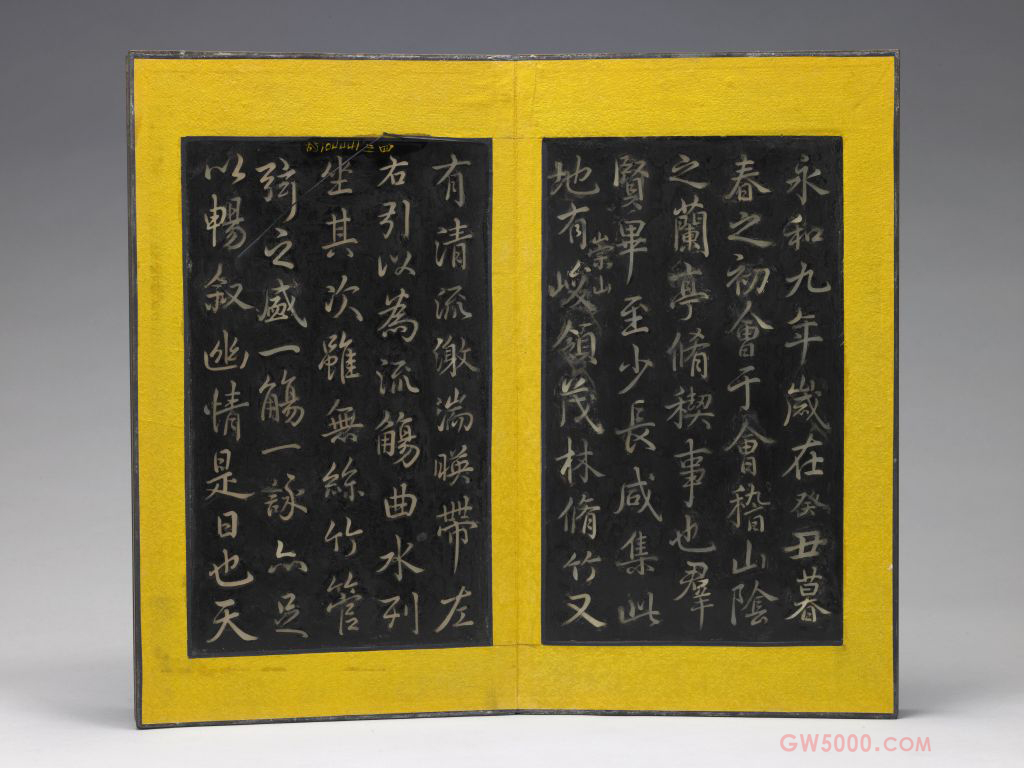 永和九年歲在癸丑暮
春之初會于會稽山陰
之蘭亭脩稧事也羣
賢畢至少長咸集此
地有崇山峻領茂林脩竹又
有清流激湍暎帶左
右引以為流觴曲水列
坐其次雖無絲竹管
弦之盛一觴一詠亦足
以暢敘幽情是日也天
GW5000.COM